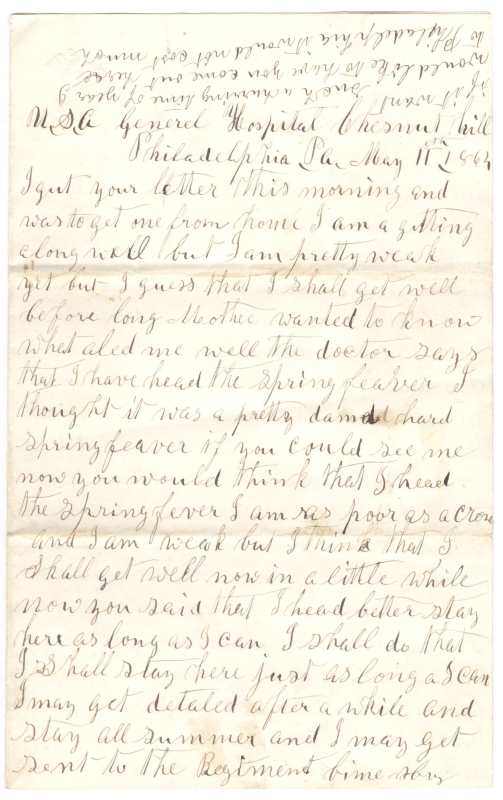 if it want such a hurring time of year I
would like to have you come out here
to Philadelphia it would not cost much
U.S.A General Hospital Chesnut Hill
Philadelphia Pa. May 11th 1864
I gut your letter this morning and
was to get one from home I am a gitting
along well but I am pretty weak
yet but I guess that I shall get well
before long Mother wanted to know
what aled me well the doctor says
that I have head the spring feaver I
thought it was a pretty damd hard
spring feaver if you could see me
now you would think that I head
the spring fever I am as poor as a crow
and I am weak but I think that I
shall get well now in a little while
now you said that I head better stay
here as long as I can I shall do that
I shall stay here just as long a I can
I may get detaled after a while and
stay all summer and I may get
sent to the Regiment bime